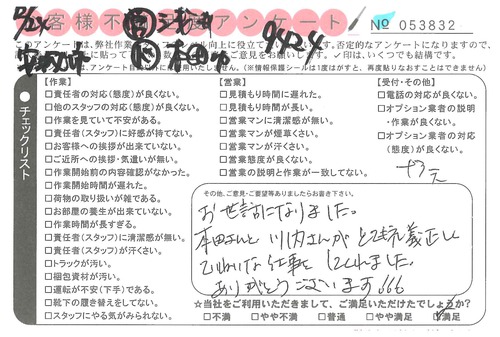 お客様不満足度アンケート
No 053832
9424
このアンケートは、弊社作業
【作業】
□責任者の対応(態度)が良くない。
□他のスタッフの対応(態度)が良くない。
□作業を見ていて不安がある。
□責任者(スタッフ)に好感が持てない。
□お客様への挨拶が出来ていない。
□ご近所への挨拶・気遣いが無い。
□作業開始前の内容確認がなかった。
□作業開始時間が遅れた。
□荷物の取り扱いが雑である。
□お部屋の養生が出来ていない。
□作業時間が長すぎる。
□責任者(スタッフ)に清潔感が無い。
□責任者(スタッフ)が汗くさい。
□トラックが汚い。
□梱包資材が汚い。
□運転が不安(下手)である。
□靴下の履き替えをしてない。
□スタッフにやる気がみられない。
【営業】
□見積もり時間に遅れた。
□見積もり時間が長い。
□営業マンに清潔感が無い。
□営業マンが煙草くさい。
□営業マンが汗くさい。
□営業態度が良くない。
□営業の説明と作業が一致してない。
【受付・その他】
□電話の対応が良くない。
□オプション業者の説明
・作業が良くない。
□オプション業者の対応
(態度)が良くない。
チェックリスト
その他、ご意見・ご要望等ありましたらお書き下さい。
お世話になりました。
本田さんと川内さんがとても礼義正しく
ていねいな仕事をしてくれました。
ありがとうございます
☆当社をご利用いただきまして、ご満足いただけたでしょうか?
□不満 □やや不満 □普通 □やや満足 ☑満足